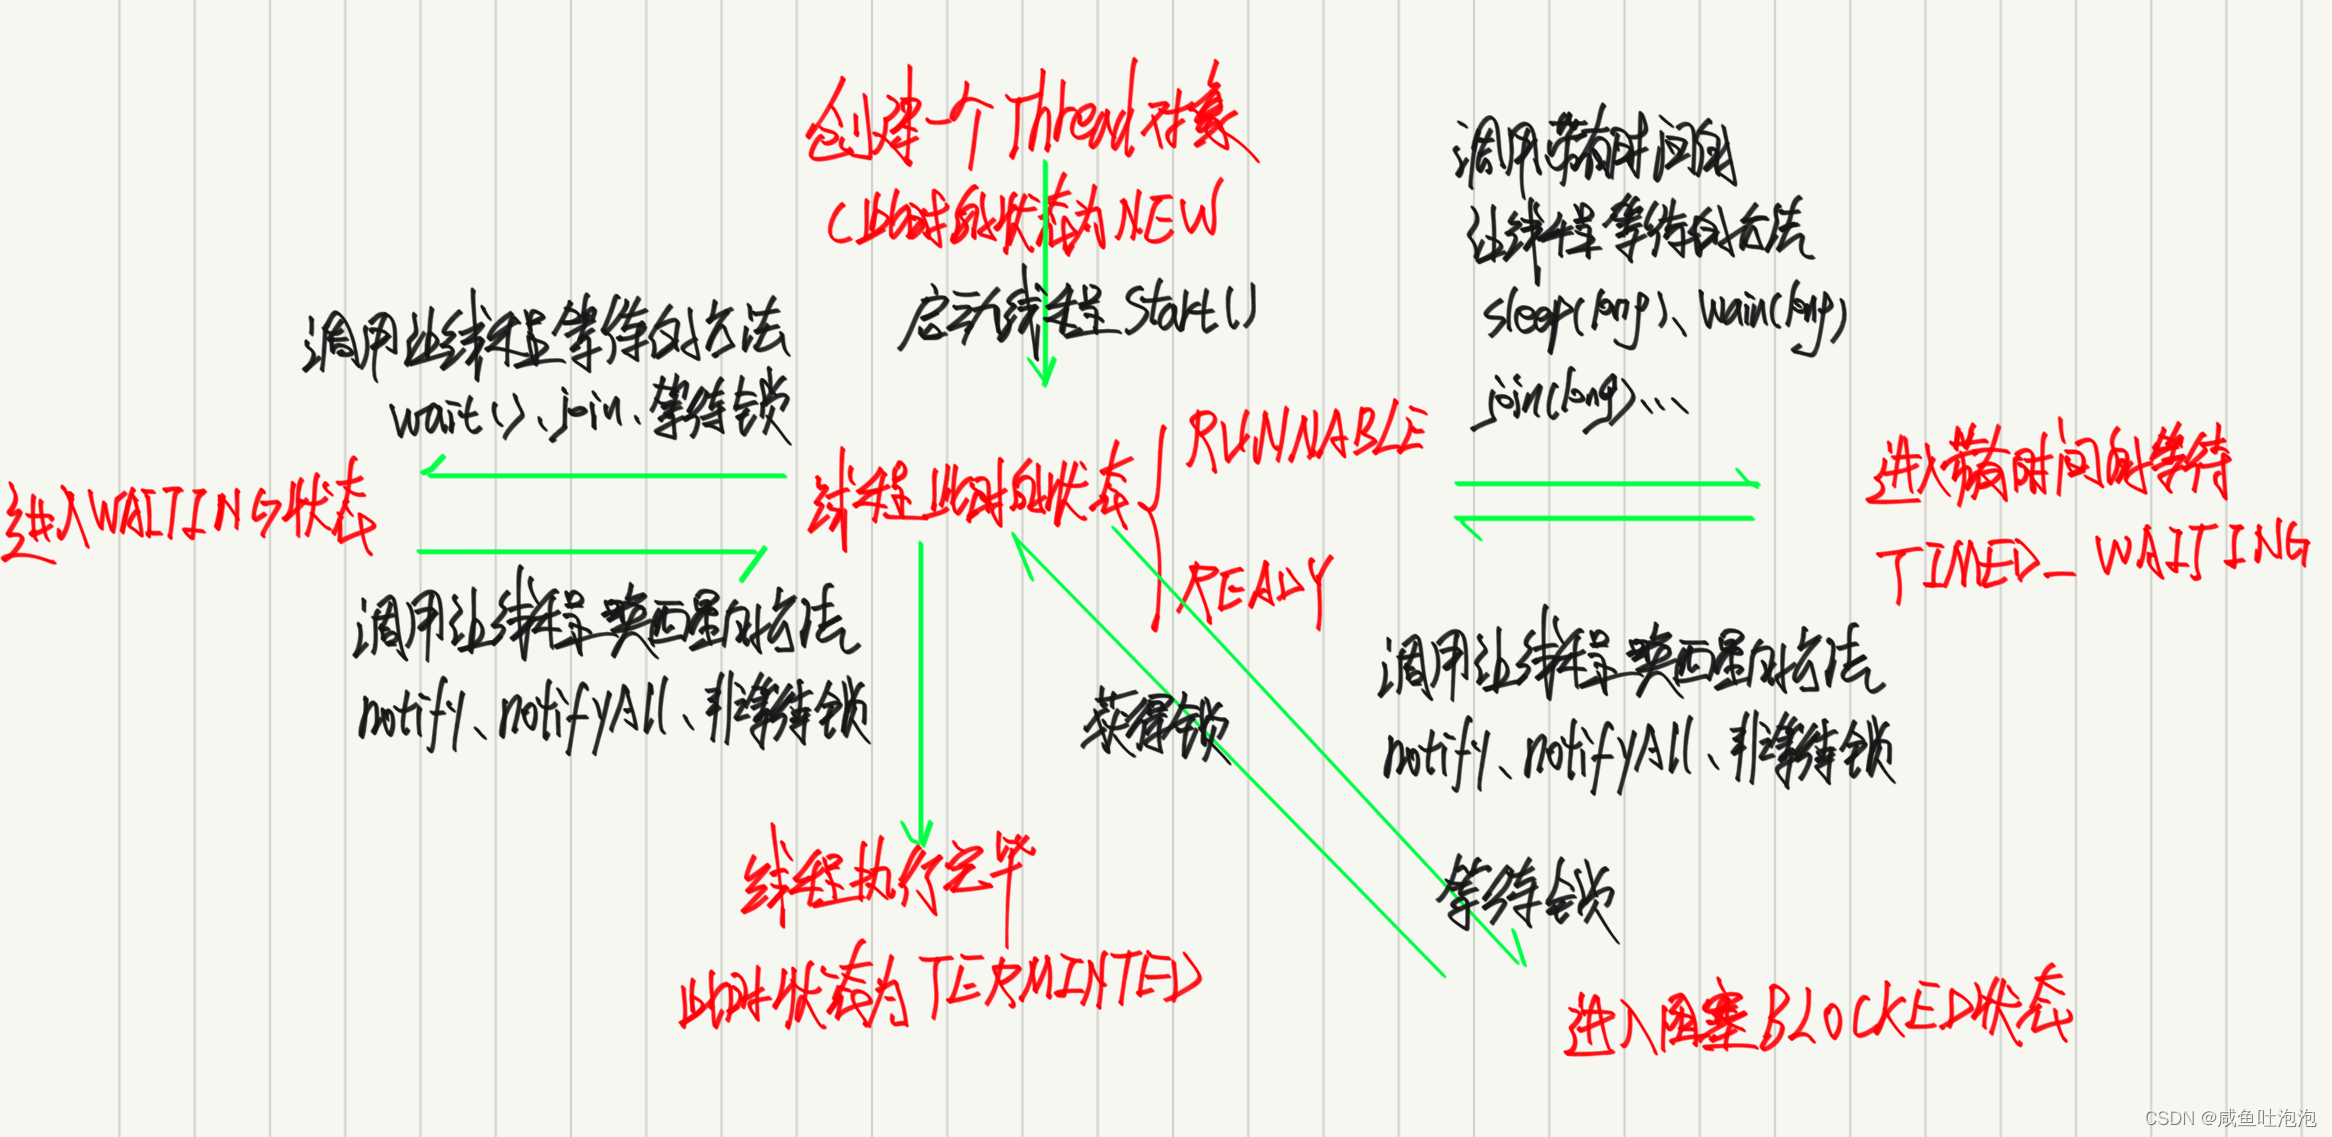 创建一个Thread对象
(此时的状态为NEW
启动线程 Start()
调用带有时间的
让线程等待的方法
sleep(long)、wain(long)
join(long)...
调用让线程等待的方法
wait()、join、等待锁
进入WAITING状态
线程此时的状态
RUNNABLE
READY
进入带有时间的等待
TIMED_WAITING
调用让线程唤醒的方法
notify、notifyAll、非等待锁
获得锁
调用让线程唤醒的方法
notify、notifyAll、非等待锁
线程执行完毕
此时状态为TERMINTED
等待锁
进入阻塞BLOCKED状态
CSDN @咸鱼吐泡泡